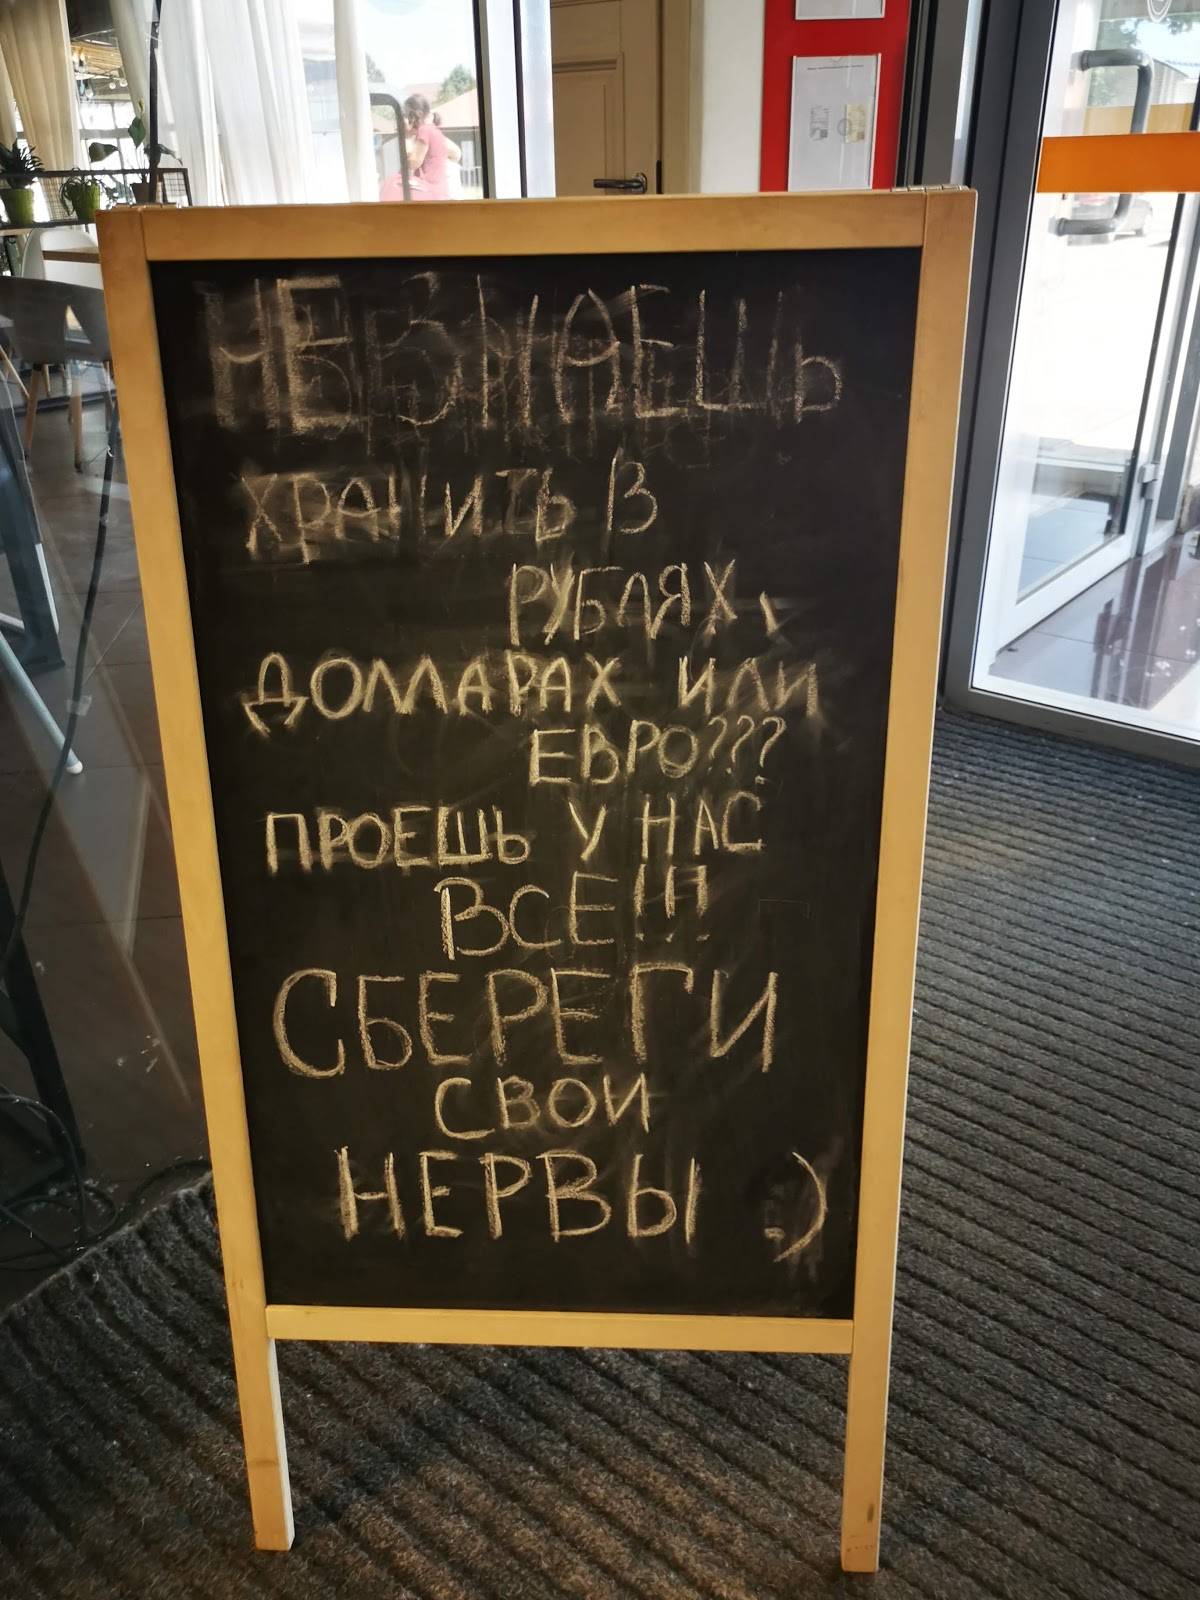 НЕ ЗНАЕШЬ
ХРАНИТЬ В
РУБЛЯХ,
ДОЛЛАРАХ ИЛИ
ЕВРО???
ПРОЕШЬ У НАС
ВСЕ!!!
СБЕРЕГИ
СВОИ
НЕРВЫ :)